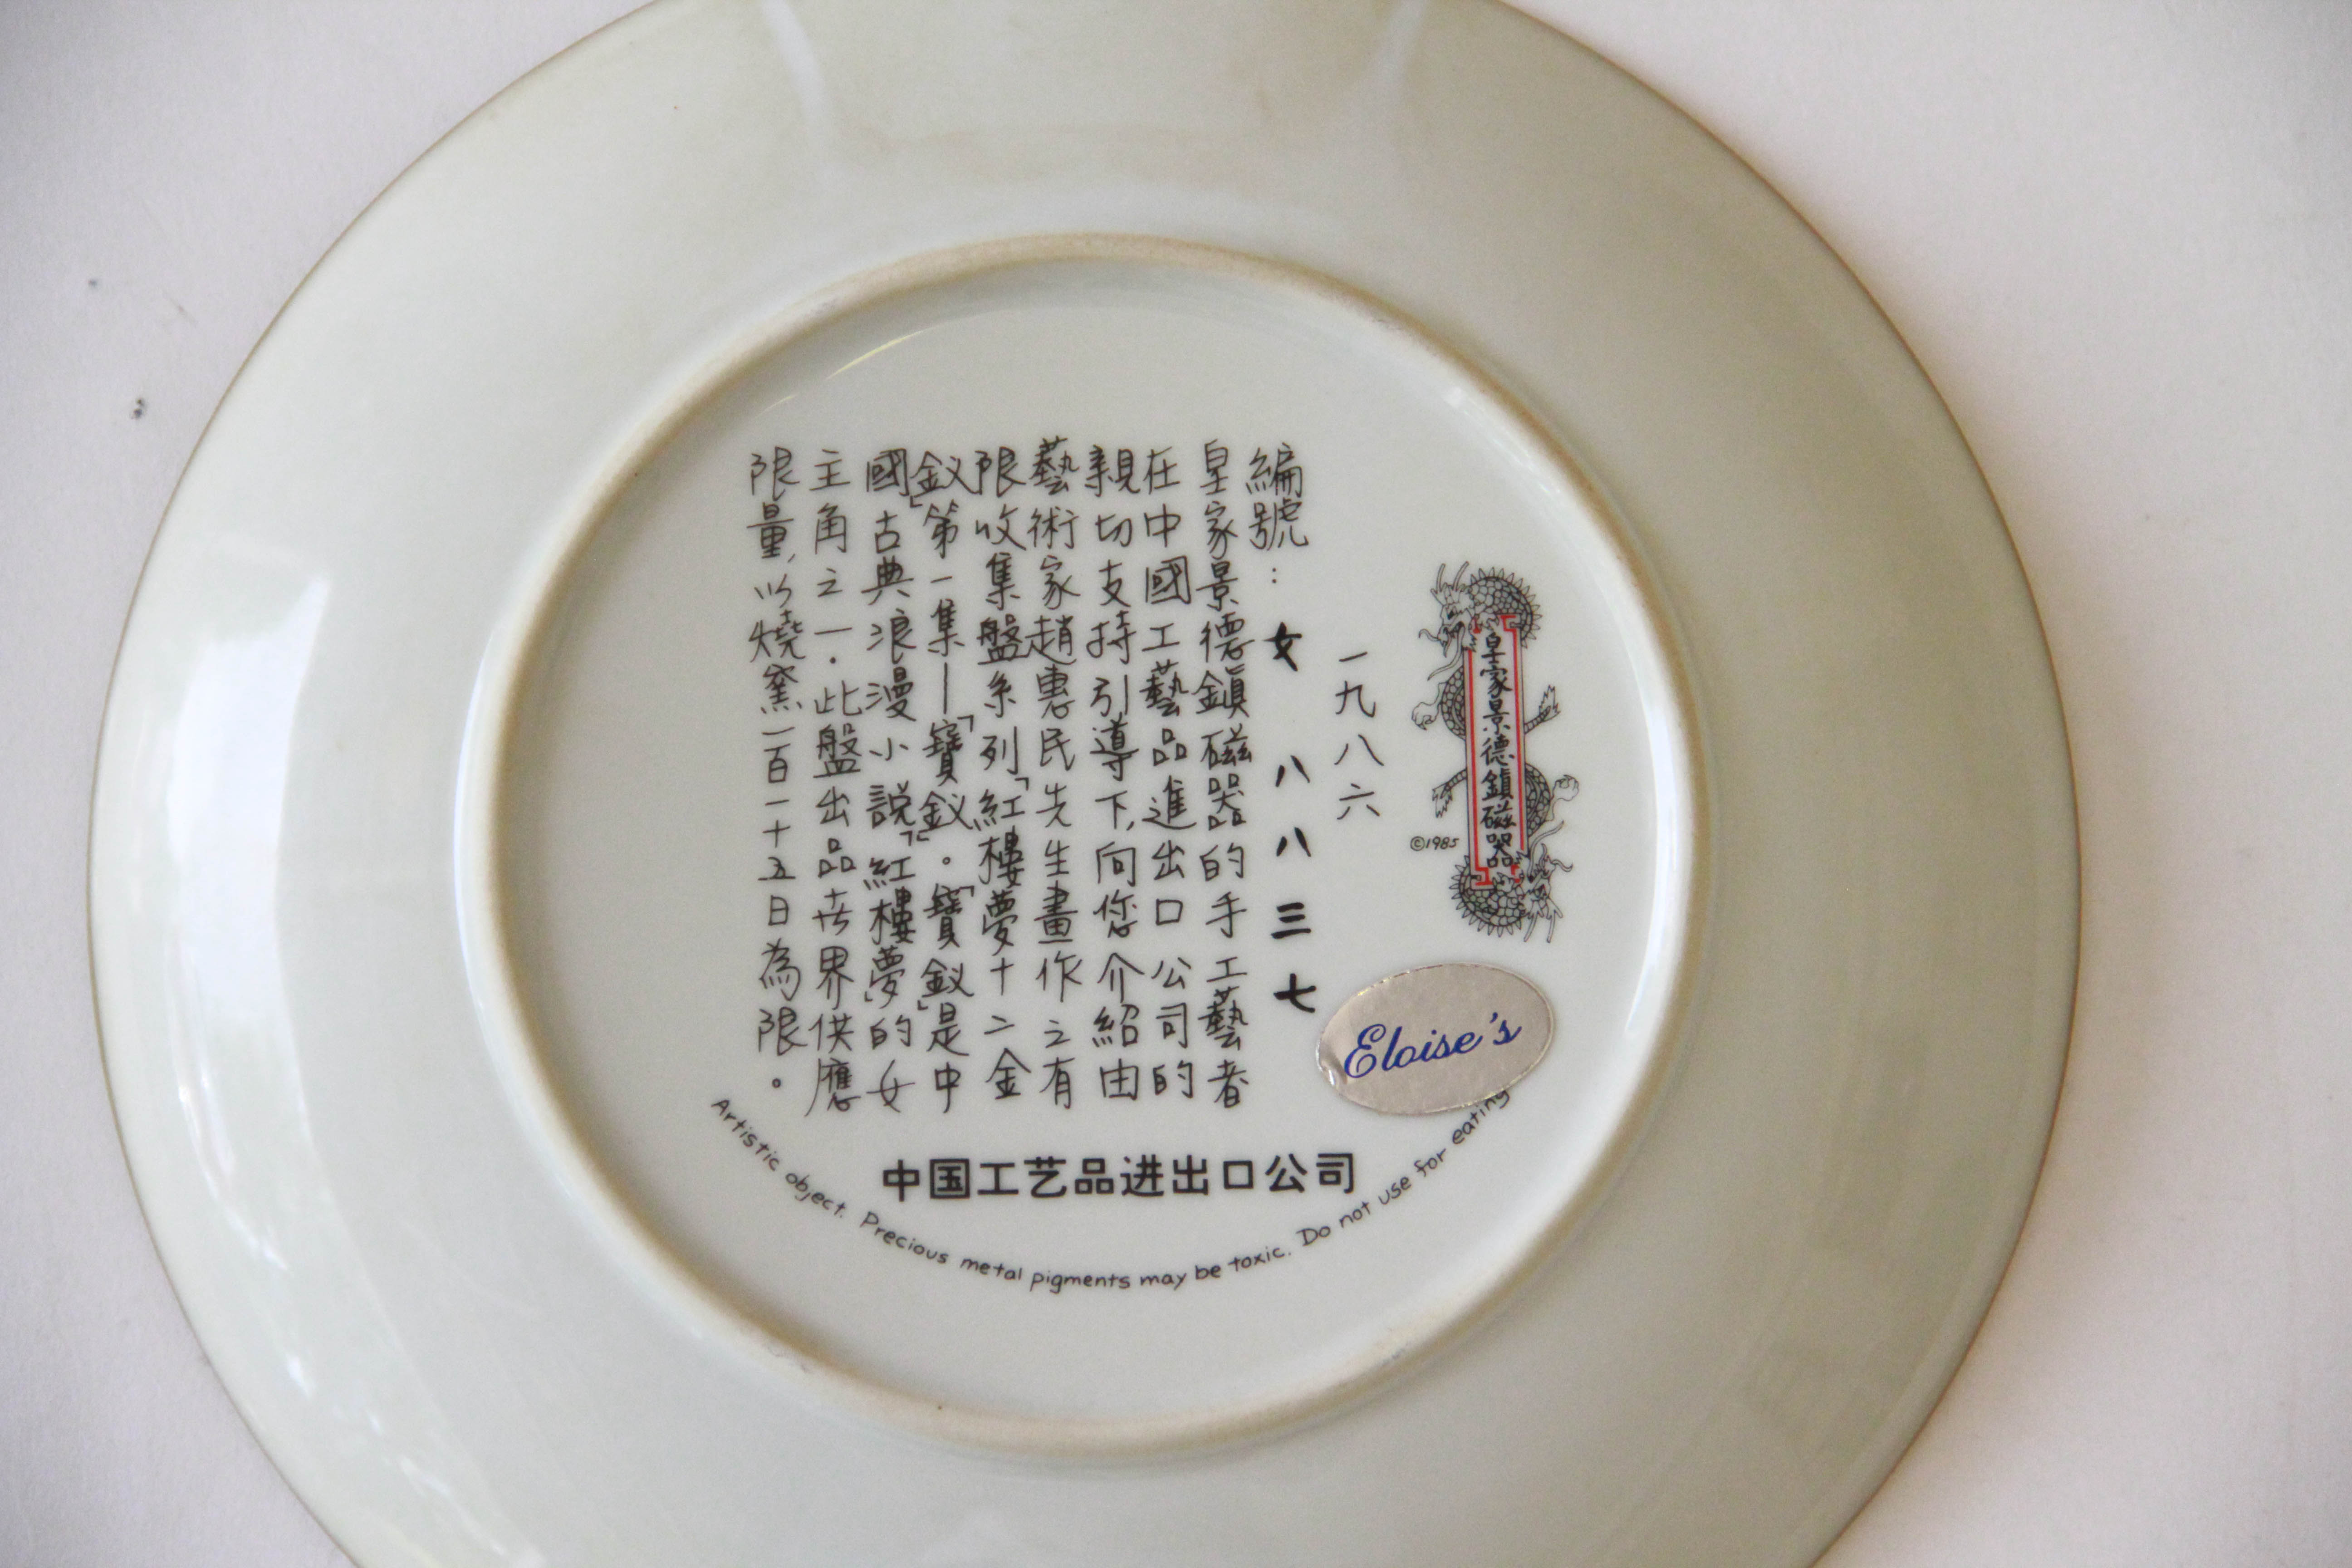 皇家景德鎮磁器
©1985
一九八六
編號：女八八三七
皇家景德鎮磁器的手工藝者
在中國工藝品進出口公司的
親切支持引導下,向您介紹由
藝術家趙惠民先生畫作之有
限收集盤系列「紅樓夢十二金
釵」第一集—「寶釵」。「寶釵」是中
國古典浪漫小説「紅樓夢」的女
主角之一．此盤出品去界供應
限量,以燒窯一百一十五日為限。
Eloise's
中国工艺品进出口公司
Artistic object. Precious metal pigments may be toxic. Do not use for eating